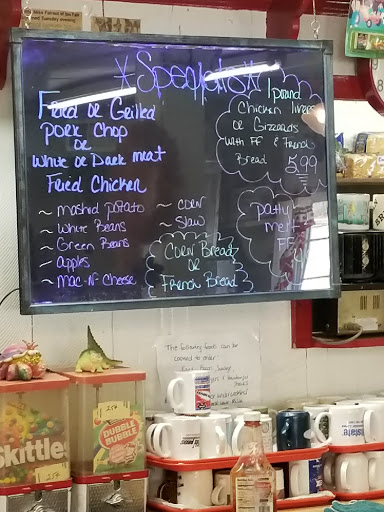 *Specials*
Fried or Grilled
Pork Chop
or
White or Dark meat
Fried Chicken
~ mashed potato
~ White Beans
~ Green Beans
~ apples
~ Mac-N-Cheese
~ corn
~ Slaw
Corn Bread
or
French Bread
1 pound
Chicken livers
or Gizzards
with FF & French
Bread
5.99
patty
mel
FF
The following foods can be
cooked to order
Skittles
25¢
DUBBLE
BUBBLE
25¢